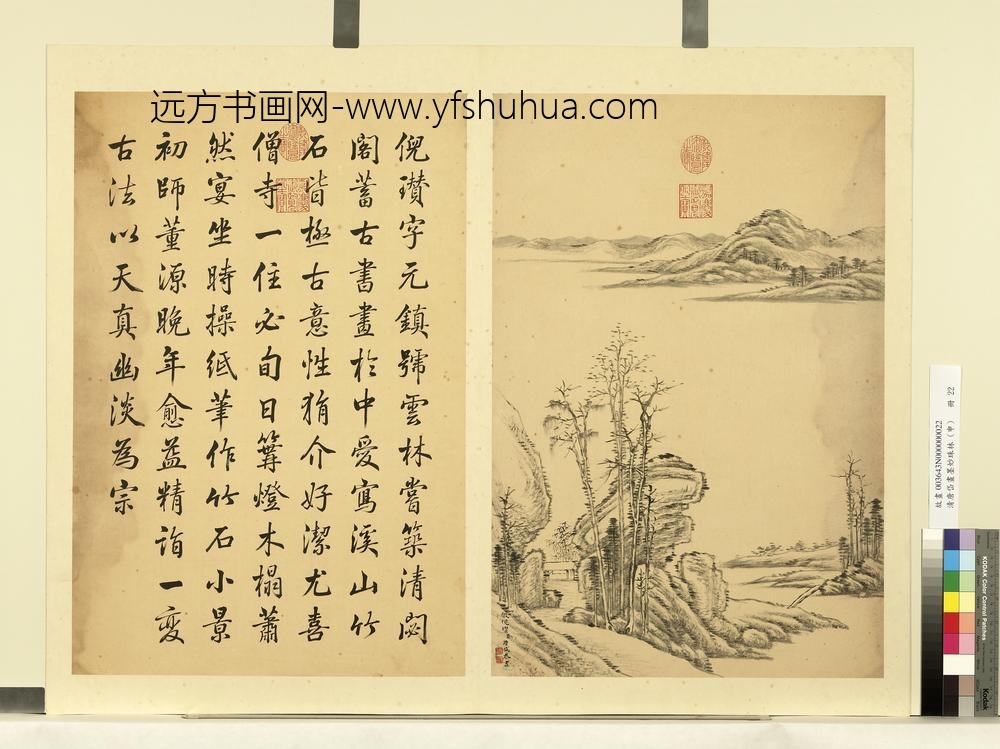 远方书画网-www.yfshuhua.com
倪瓚字元鎮號雲林嘗築清閟
閣蓄古書畫於中愛寫溪山竹
石皆極古意性狷介好潔尤喜
僧寺一住必旬日篝燈木榻蕭
然宴坐時操紙筆作竹石小景
初師董源晚年愈益精詣一變
古法以天真幽淡為宗
故畫003643N000000022
清唐岱畫墨妙珠林(申) 冊 22
KODAK Color Control Patches
Kodak